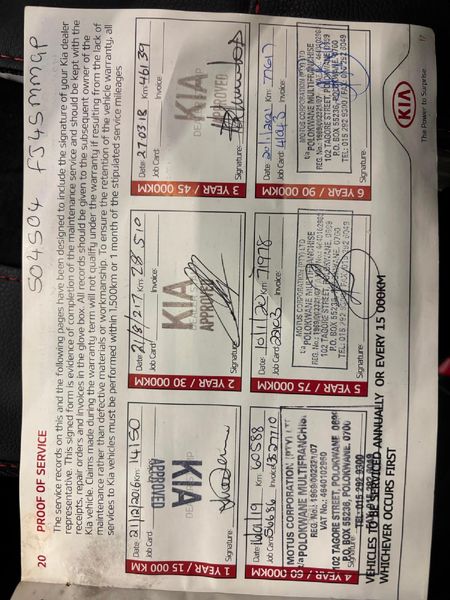 504504 FJ45MMGP
20 PROOF OF SERVICE
The service records on this and the following pages have been designed to include the signature of your Kia dealer
representative. This signed form is evidence of completion of the maintenance service and should be kept with the
receipts, repair orders and invoices in the glove box. All records should be given to the subsequent owner of the
Kia vehicle. Claims made during the warranty term will not qualify under the warranty if resulting from the lack of
maintenance rather than defective materials or workmanship. To ensure the retention of the vehicle warranty, all
services to Kia vehicles must be performed within 1,500km or 1 month of the stipulated service mileages
1 YEAR / 15 000 KM
Date: 21/12/2016 Km: 14150
Job Card: Invoice:
KIA
APPROVED
Signature:
2 YEAR / 30 000KM
Date: 21/8/217 Km: 28 510
Job Card: Invoice:
KIA
APPROVED
Signature:
3 YEAR / 45 000KM
Date: 270318 Km: 46139
Job Card: Invoice:
KIA
APPROVED
Signature:
4 YEAR / 60 000KM
Date: 16/01/19 Km: 60588
Job Card: Invoice:
MOTUS CORPORATION (PTY) LTD
t/a POLOKWANE MULTIFRANCHISE
REG. No.: 1969/002321/07
VAT REG. No.:
102 TAGORE STREET, POLOKWANE
P.O. BOX 55236, POLOKWANE, 0700
TEL: 015 292 9300
5 YEAR / 75 000KM
Date: 10/1/20 Km: 71978
Job Card: Invoice:
MOTUS CORPORATION (PTY) LTD
t/a POLOKWANE MULTIFRANCHISE
102 TAGORE STREET, POLOKWANE, 0699
P.O. BOX 55236, POLOKWANE, 0700
Signature:
6 YEAR / 90 000KM
Date: 20/1/2021 Km: 77617
Job Card: Invoice:
MOTUS CORPORATION (PTY) LTD
t/a POLOKWANE MULTIFRANCHISE
102 TAGORE STREET
P.O. BOX 55236
Signature:
VEHICLES TO BE SERVICED ANNUALLY OR EVERY 15 000KM
WHICHEVER OCCURS FIRST
KIA
The Power to Surprise
17